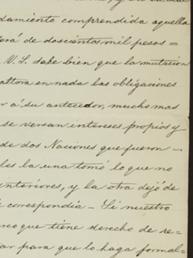 damiento comprendida aquella
de doscientos mil pesos =
V. S. sabe bien que la mutacion
altera en nada las obligaciones
á su antecesor, mucho mas
se versan intereses propios y
de dos Naciones que fueron —
la una tomó lo que no
anteriores, y la otra dejó de
correspondia — Si nuestro
que tiene derecho de re-
para que lo haga formal-